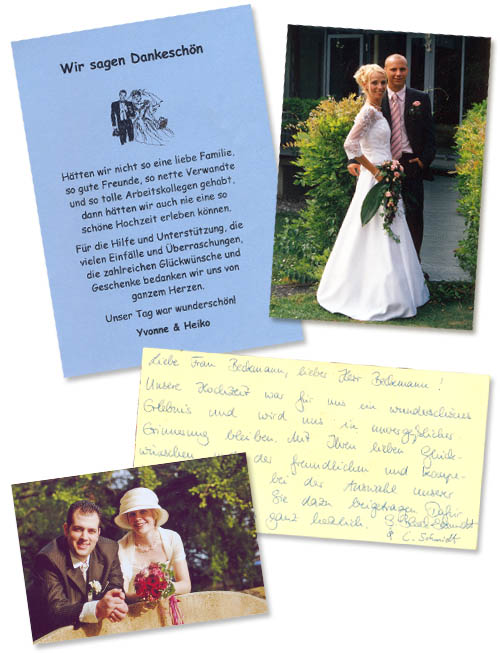 Wir sagen Dankeschön
Hätten wir nicht so eine liebe Familie,
so gute Freunde, so nette Verwandte
und so tolle Arbeitskollegen gehabt,
dann hätten wir auch nie eine so
schöne Hochzeit erleben können.
Für die Hilfe und Unterstützung, die
vielen Einfälle und Überraschungen,
die zahlreichen Glückwünsche und
Geschenke bedanken wir uns von
ganzem Herzen.
Unser Tag war wunderschön!
Yvonne & Heiko
Liebe Frau Beckmann, lieber Herr Beckmann!
Unsere Hochzeit war für uns ein wunderschönes
Erlebnis und wird uns in unvergeßlicher
Erinnerung bleiben. Mit Ihren lieben Glück-
wünschen der freundlichen und kompe-
bei der Auswahl unserer
Sie dazu beigetragen. Dafür
ganz herzlich.
& C. Schmidt